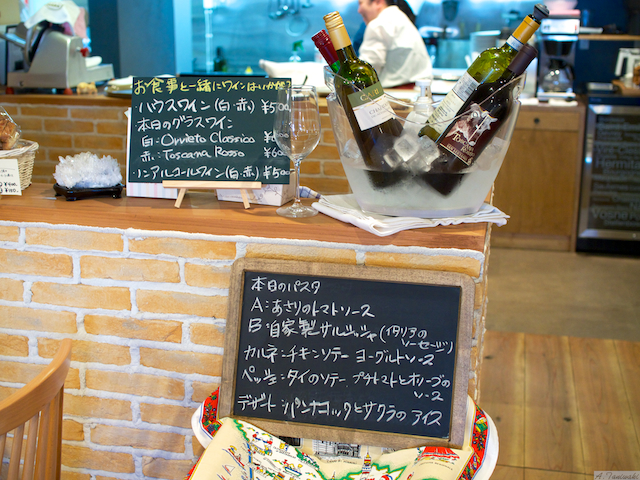 お食事と一緒にワインはいかが?
ハウスワイン(白・赤) ¥500
本日のグラスワイン
白:Orvieto Classico
赤:Toscana Rosso
ノンアルコールワイン(白・赤) ¥500
本日のパスタ
A:あさりのトマトソース
B:自家製サルシッチャ(イタリアのソーセージ)
カルネ:チキンソテー ヨーグルトソース
ペッシェ:タイのソテー プチトマトとオリーブのソース
デザート:パンナコッタとサクラのアイス